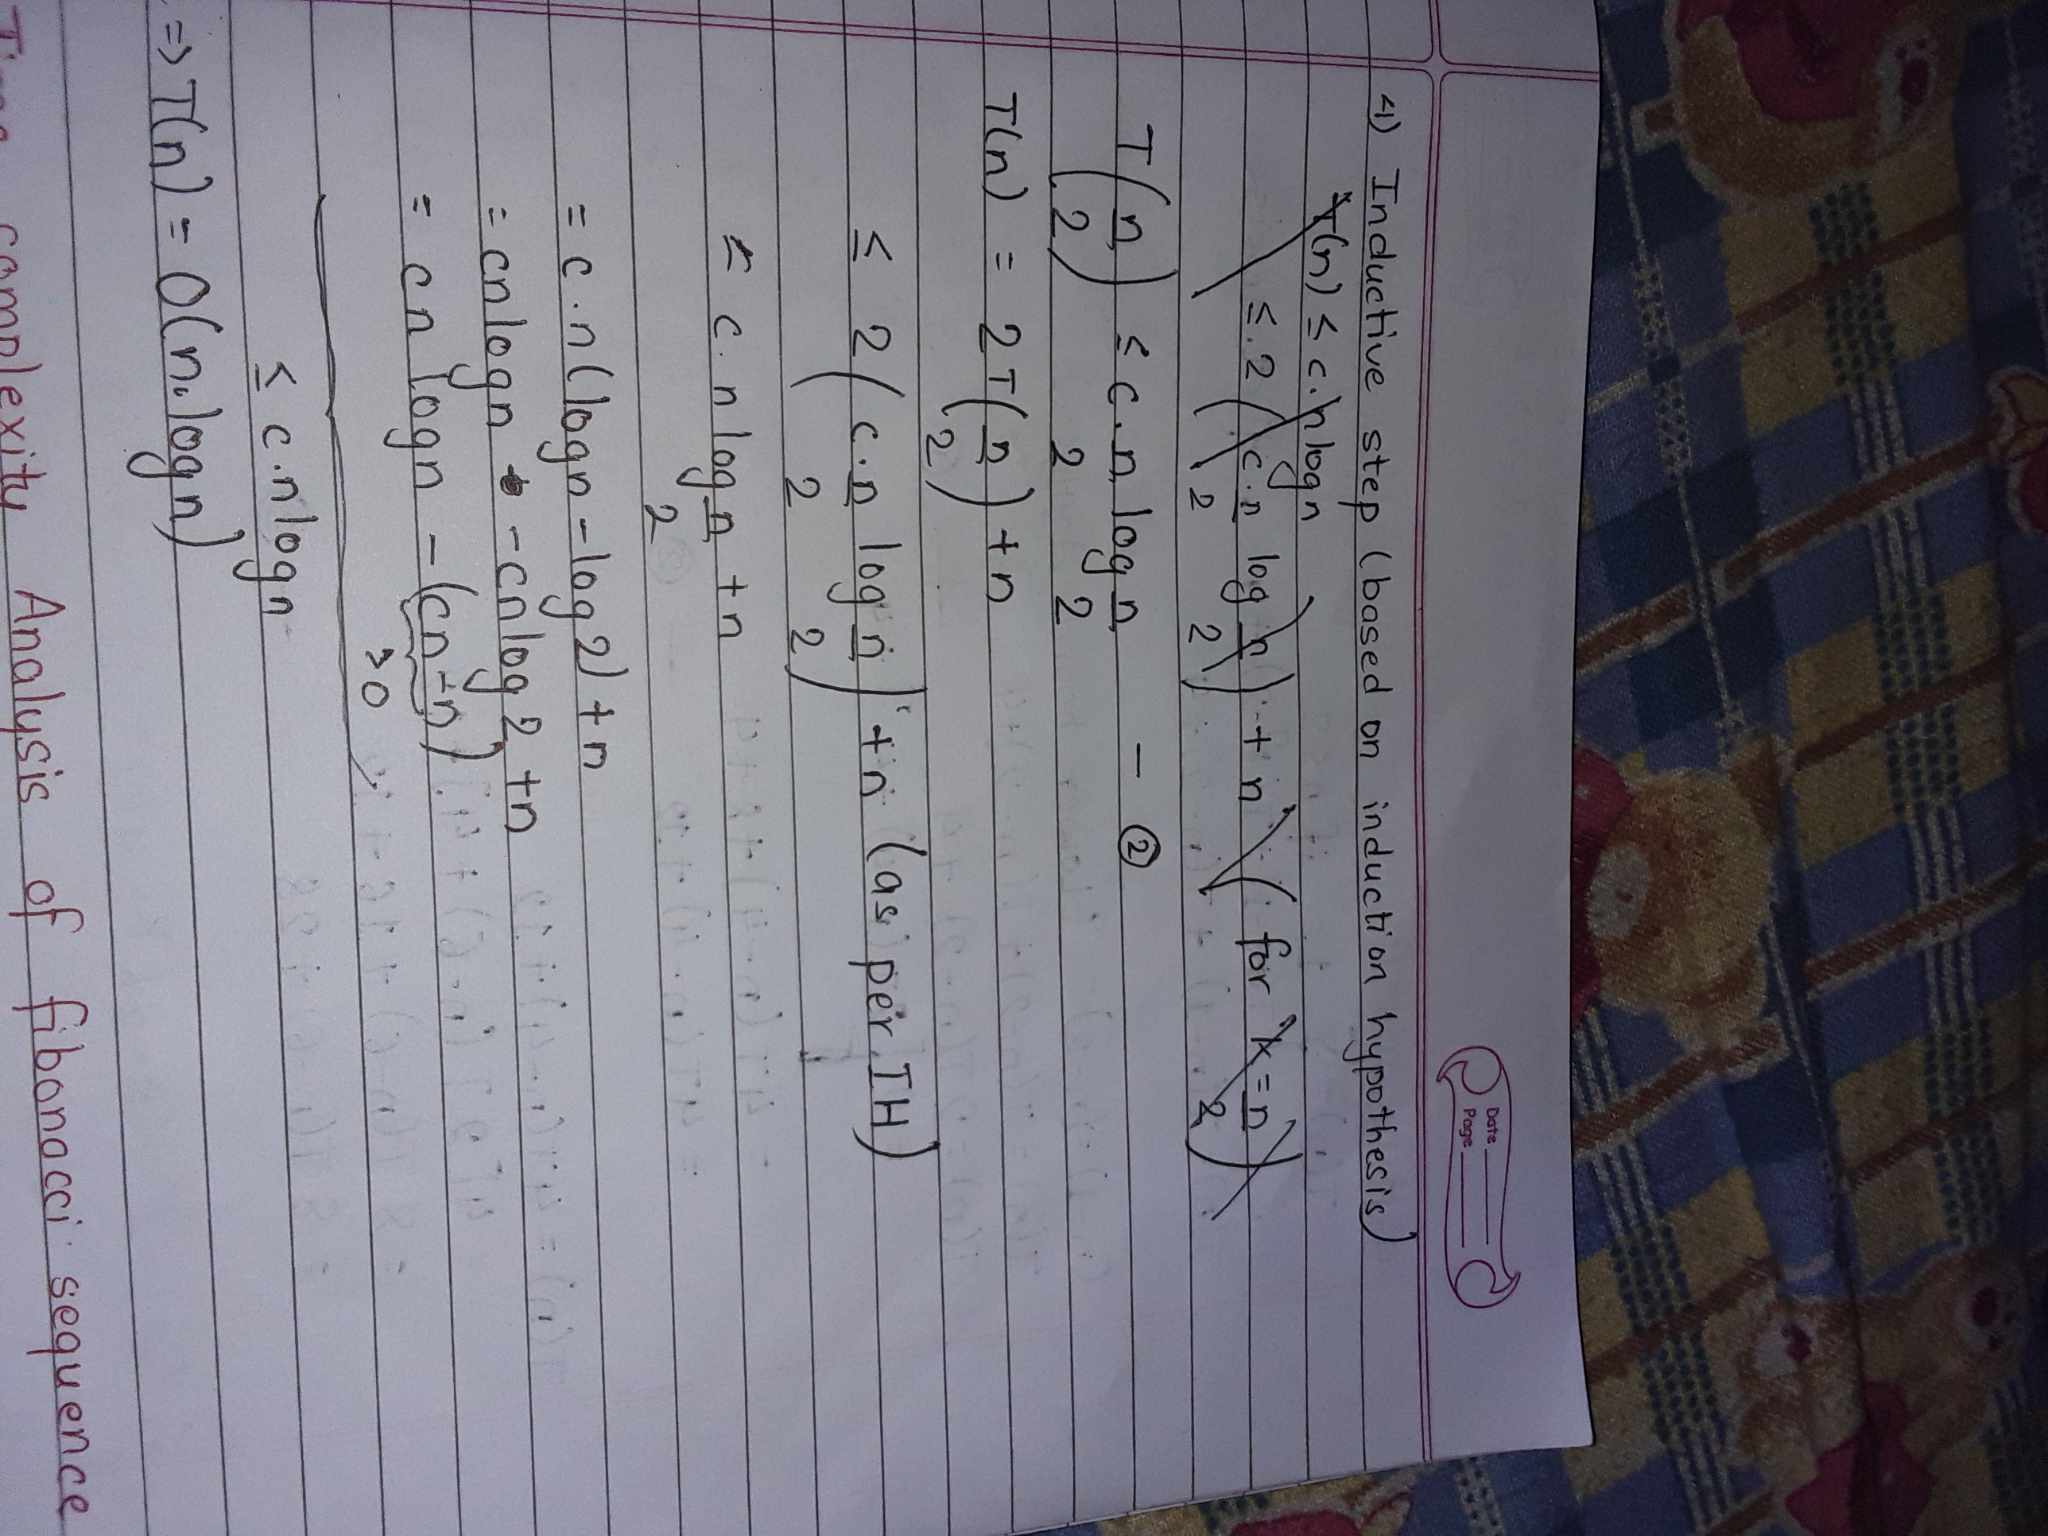 Date
Page
4) Inductive step (based on induction hypothesis)
T(n) ≤ c.n logn
≤ .2 (c.n/2 log n/2) + n (for k = n/2)
T(n/2) ≤ c.n/2 log n/2 - ②
T(n) = 2T(n/2) + n
≤ 2(c.n/2 log n/2) + n (as per IH)
≤ c.n log n/2 + n
= c.n(logn - log2) + n
= cnlogn - cnlog2 + n
= cn logn - (cn - n)
>0
≤ c.nlogn
⇒ T(n) = O(n.logn)
Time complexity Analysis of fibonacci sequence